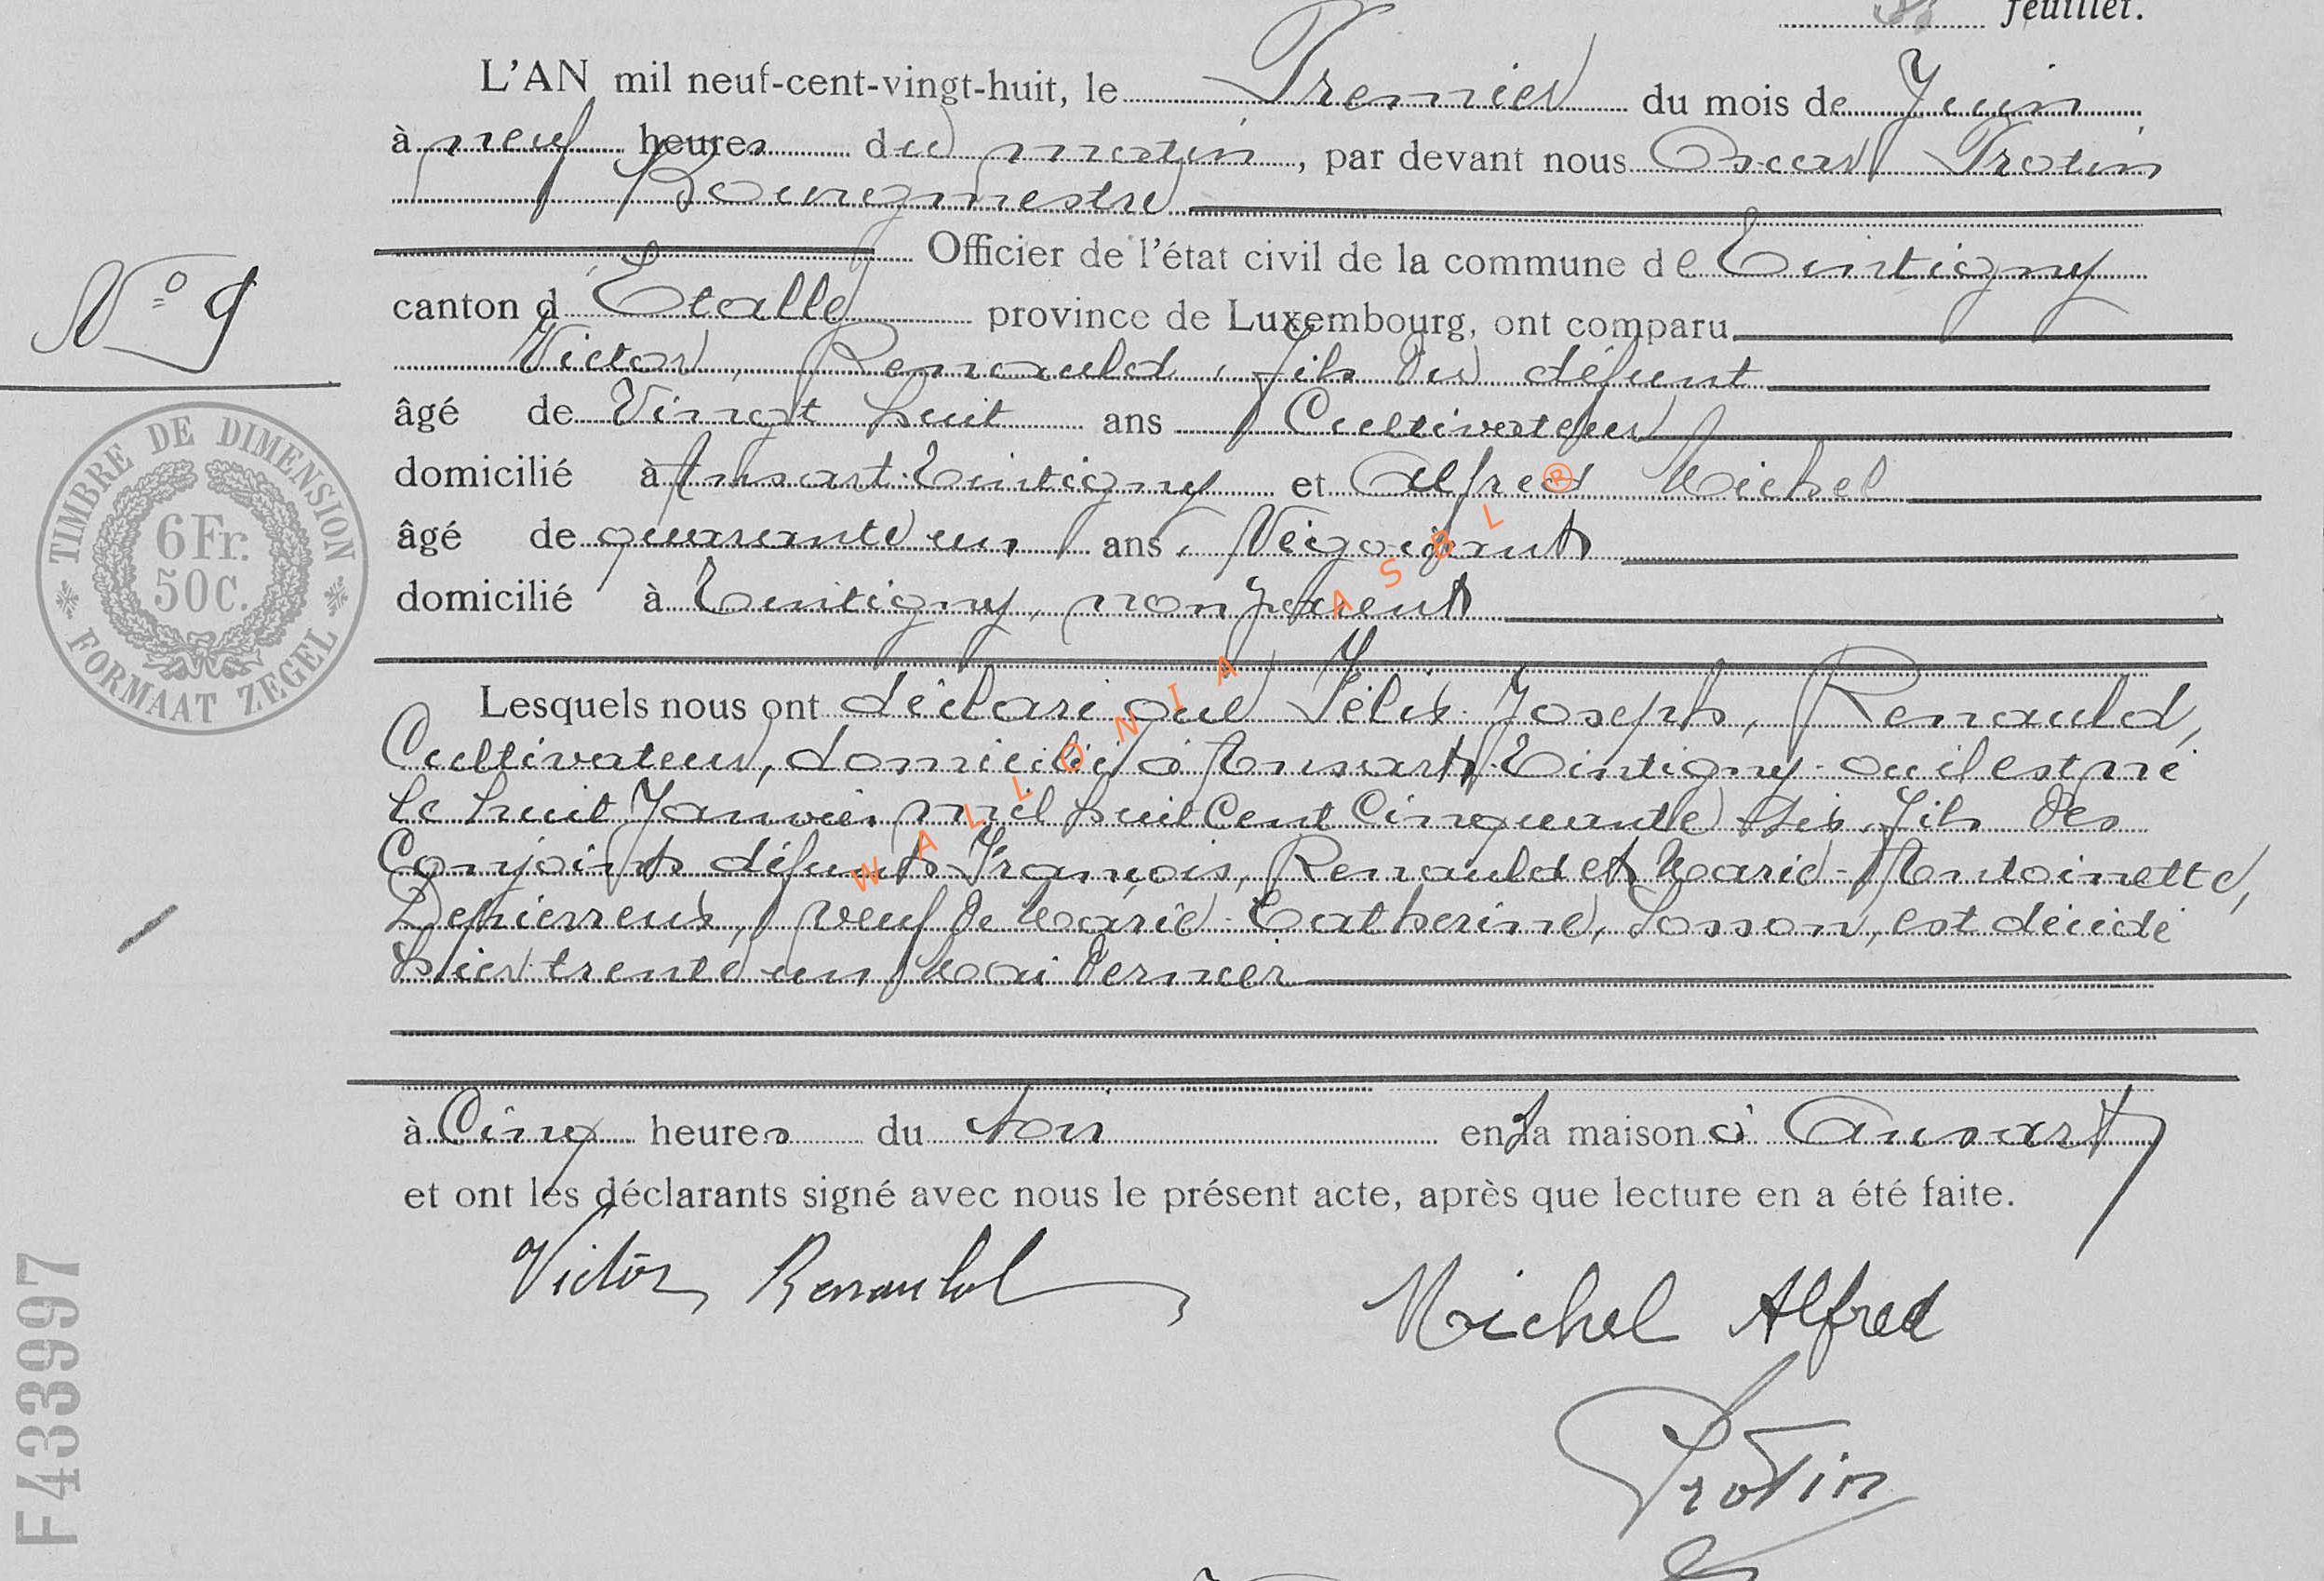 feuillet.
L'AN mil neuf-cent-vingt-huit, le Premier du mois de Juin
à neuf heures du matin, par devant nous Oscar Protin
Bourgmestre
Officier de l'état civil de la commune de Tintigny
canton d'Etalle province de Luxembourg, ont comparu
Victor, Renauld, fils du défunt
N° 9
âgé de Vingt huit ans Cultivateur
domicilié à Ansart-Tintigny et Alfred Michel
âgé de quarante un ans, Négociant
domicilié à Tintigny, non parent
Lesquels nous ont déclaré que Félix Joseph, Renauld,
Cultivateur, domicilié à Ansart-Tintigny où il est né
le huit Janvier mil huit Cent Cinquante Six, fils des
Conjoints défunts François, Renauld et Marie-Antoinette,
Depierreux, veuf de Marie-Catherine, Losson, est décédé
hier trente un Mai dernier
à Cinq heures du soir en sa maison à Ansart
et ont les déclarants signé avec nous le présent acte, après que lecture en a été faite.
Victor Renauld
Michel Alfred
Protin
TIMBRE DE DIMENSION
6 Fr.
50 C.
FORMAAT ZEGEL
F433997
WALLONIA ASBL ®